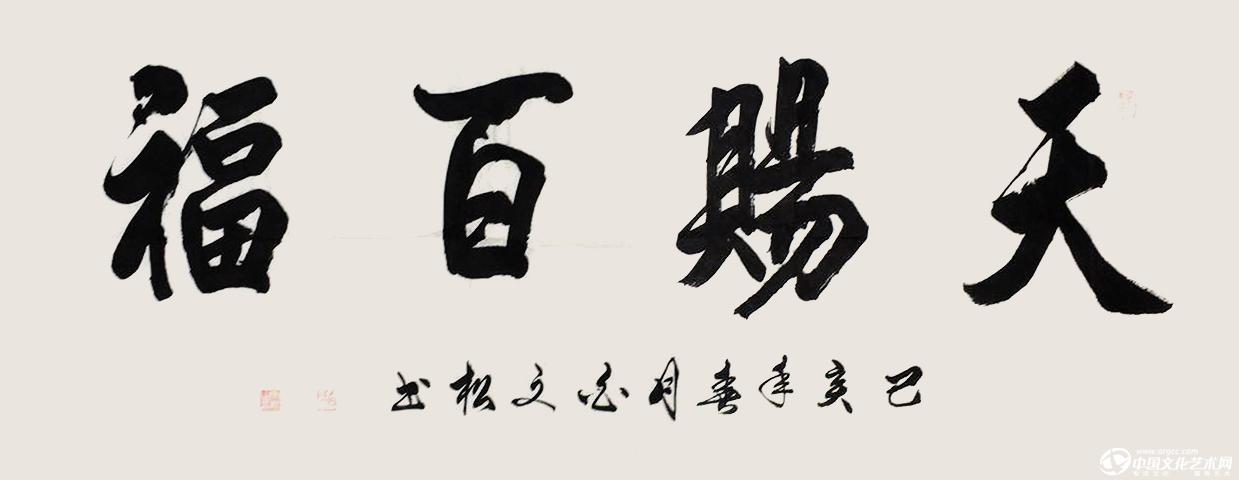 天賜百福
己亥年春月文松书
www.orgcc.com
中国文化艺术网